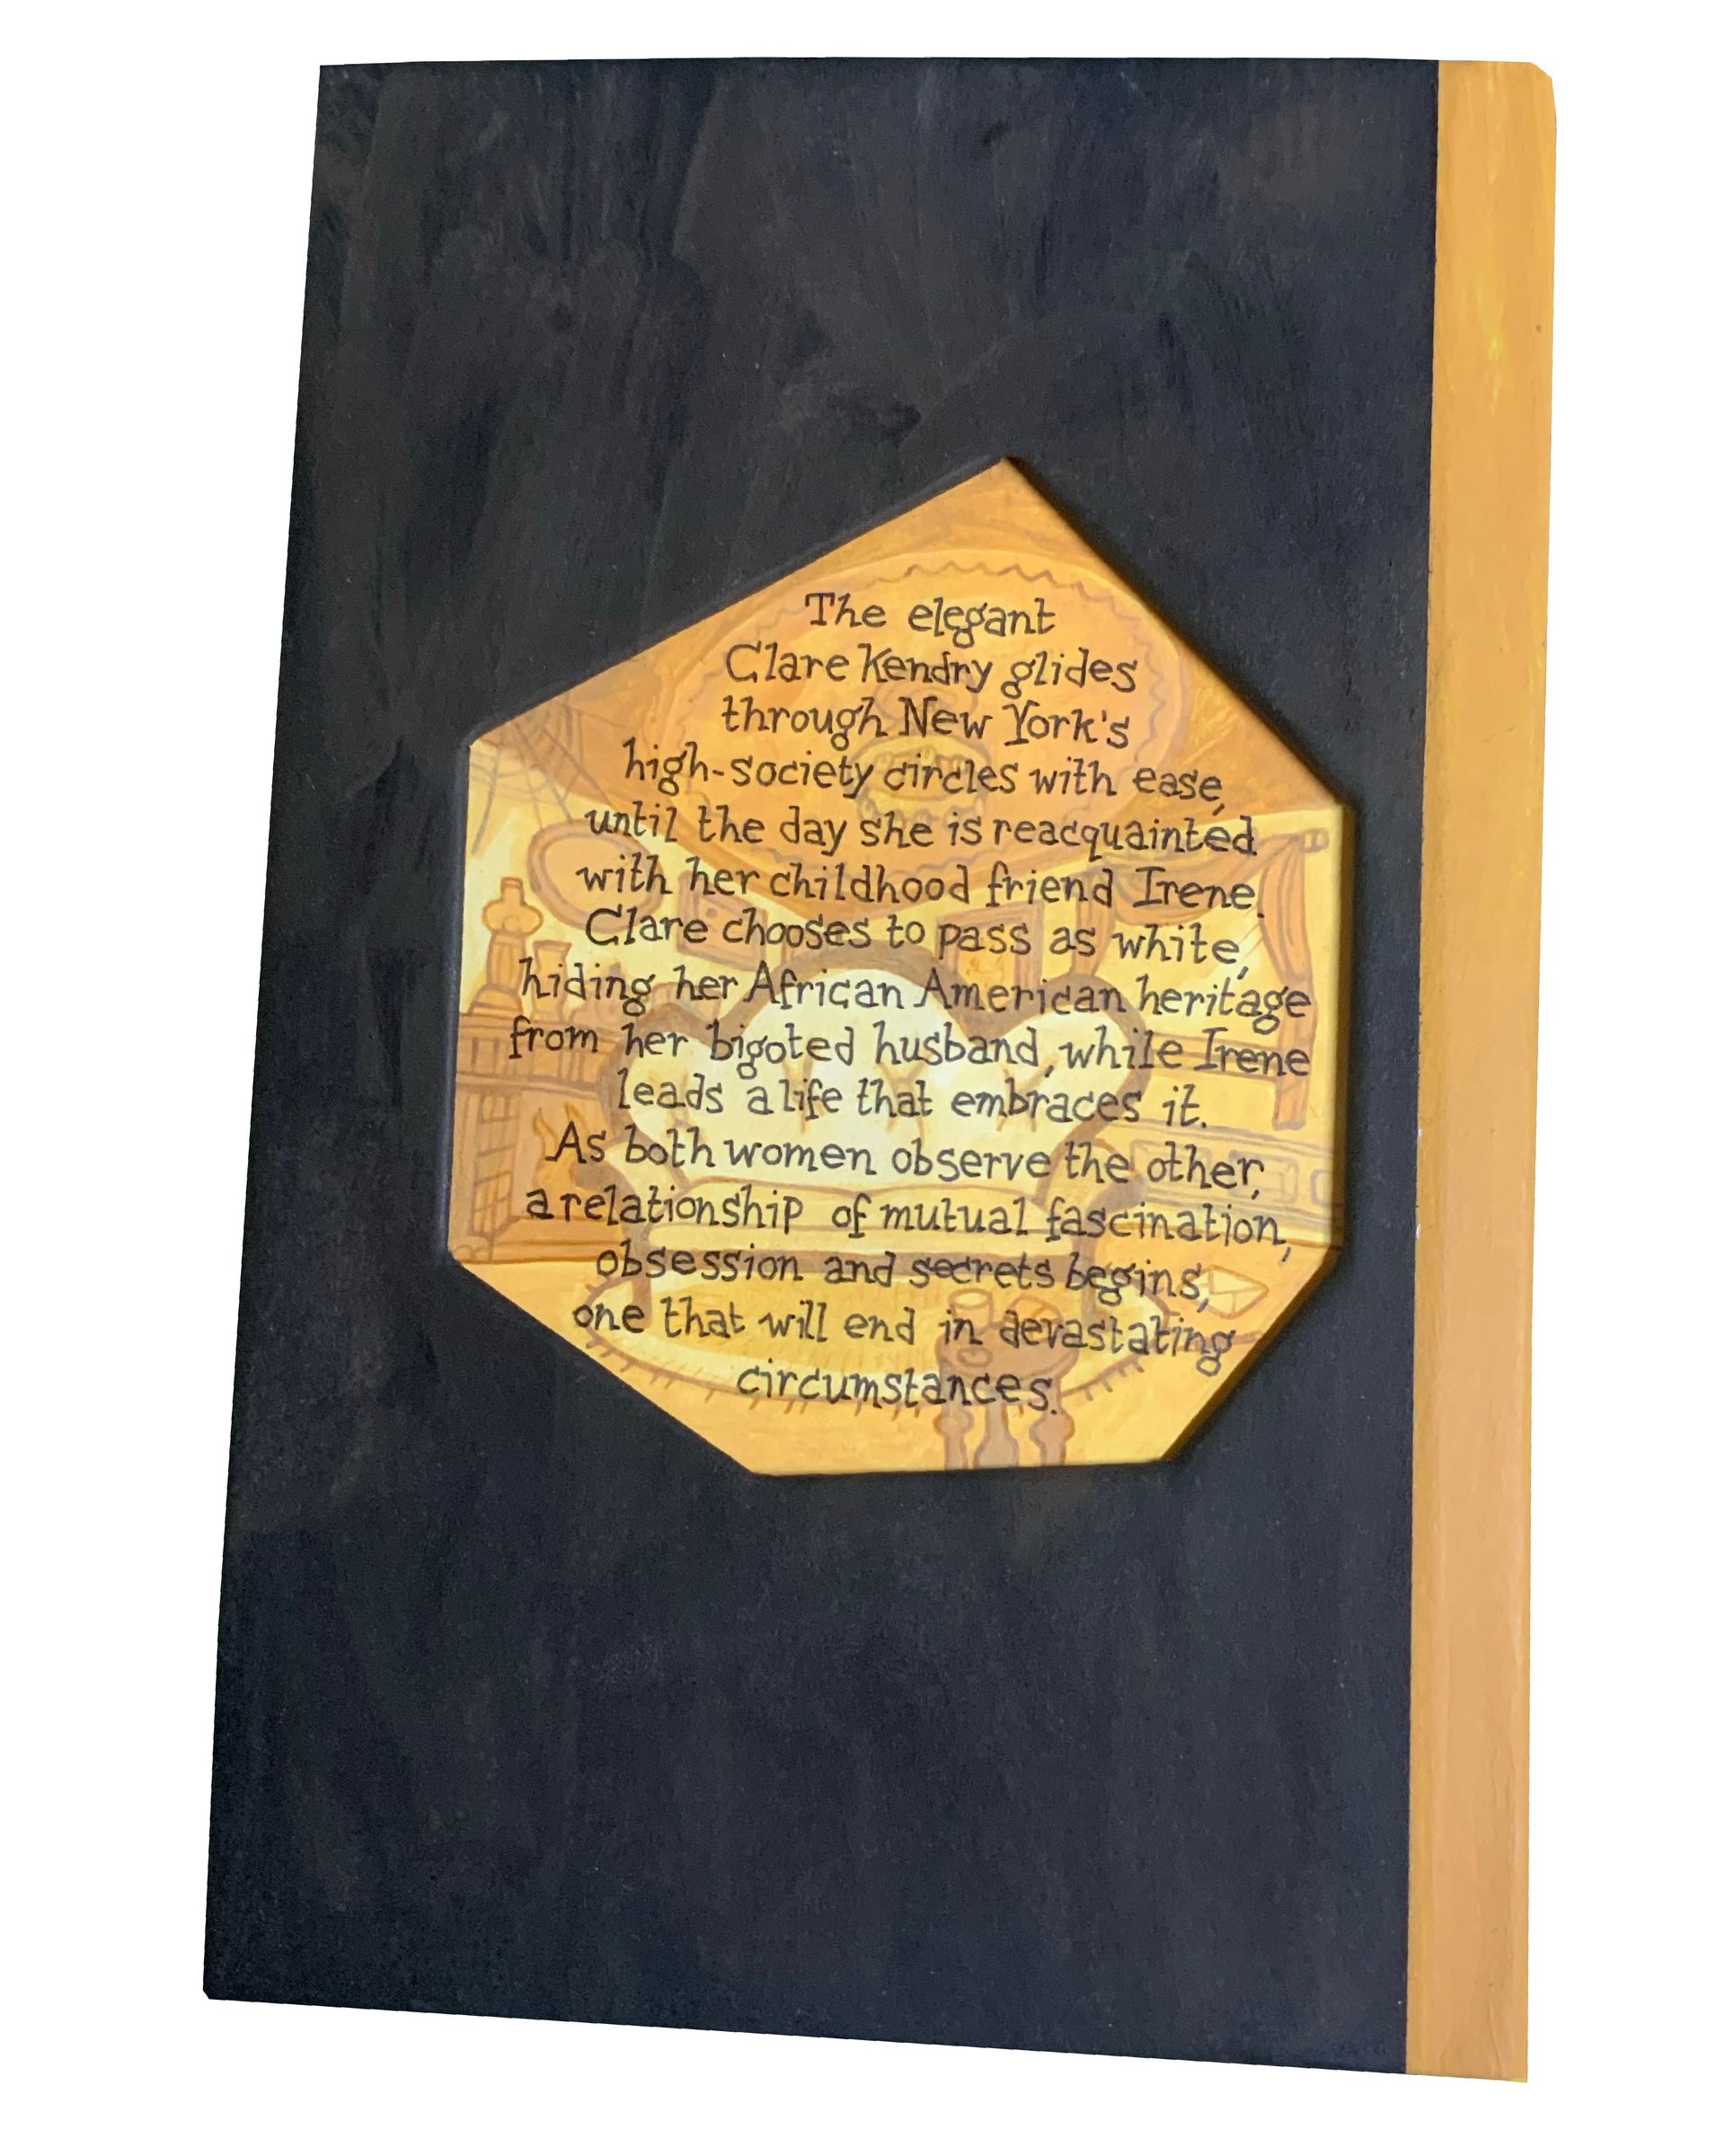 The elegant
Clare Kendry glides
through New York's
high-society circles with ease,
until the day she is reacquainted
with her childhood friend Irene.
Clare chooses to pass as white,
hiding her African American heritage
from her bigoted husband, while Irene
leads a life that embraces it.
As both women observe the other,
a relationship of mutual fascination,
obsession and secrets begins,
one that will end in devastating
circumstances.